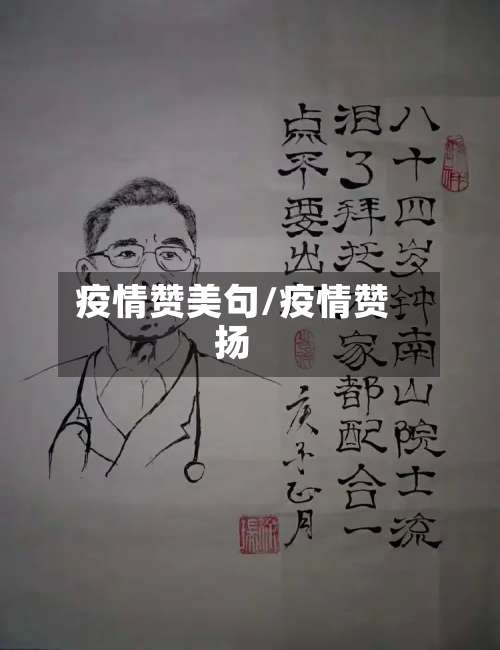 疫情赞美句/疫情赞
扬
八十四岁钟南山院士流
泪了拜托家都配合一
点不要出
庚子正月